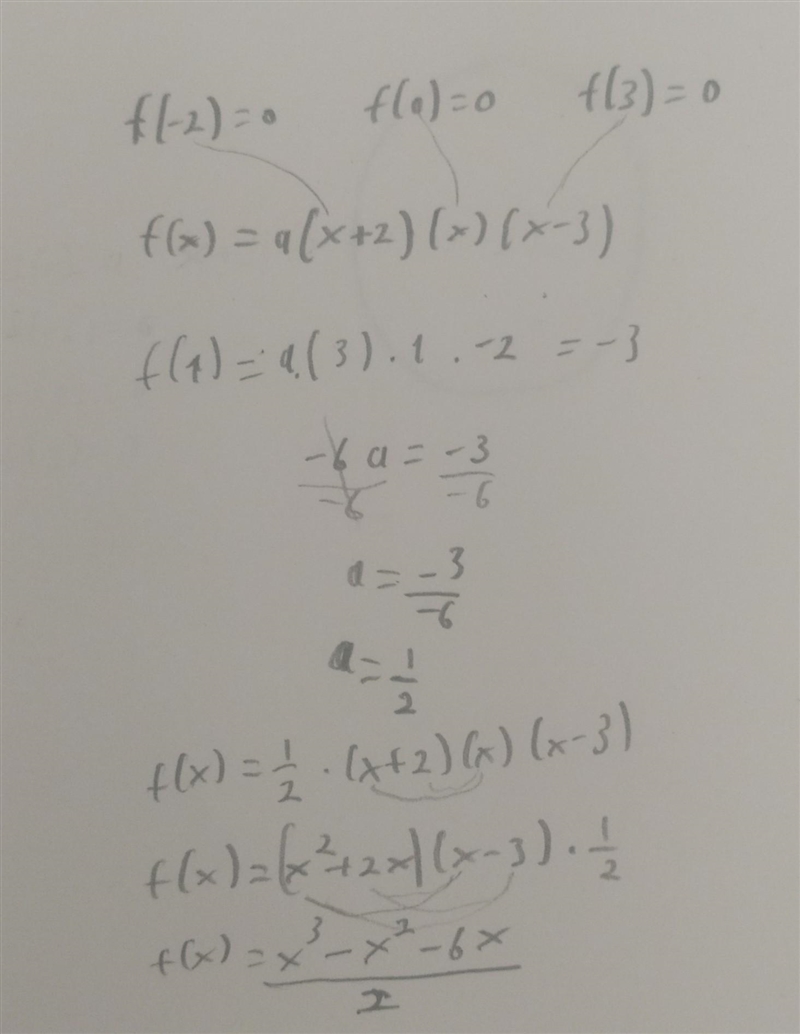 f(-2)=0 f(0)=0 f(3)=0
f(x) = a(x+2)(x)(x-3)
f(1) = a.(3).1.-2 = -3
-6a/-6 = -3/-6
a = -3/-6
a = 1/2
f(x) = 1/2 . (x+2)(x)(x-3)
f(x) = (x²+2x)(x-3) . 1/2
f(x) = x³-x²-6x/2